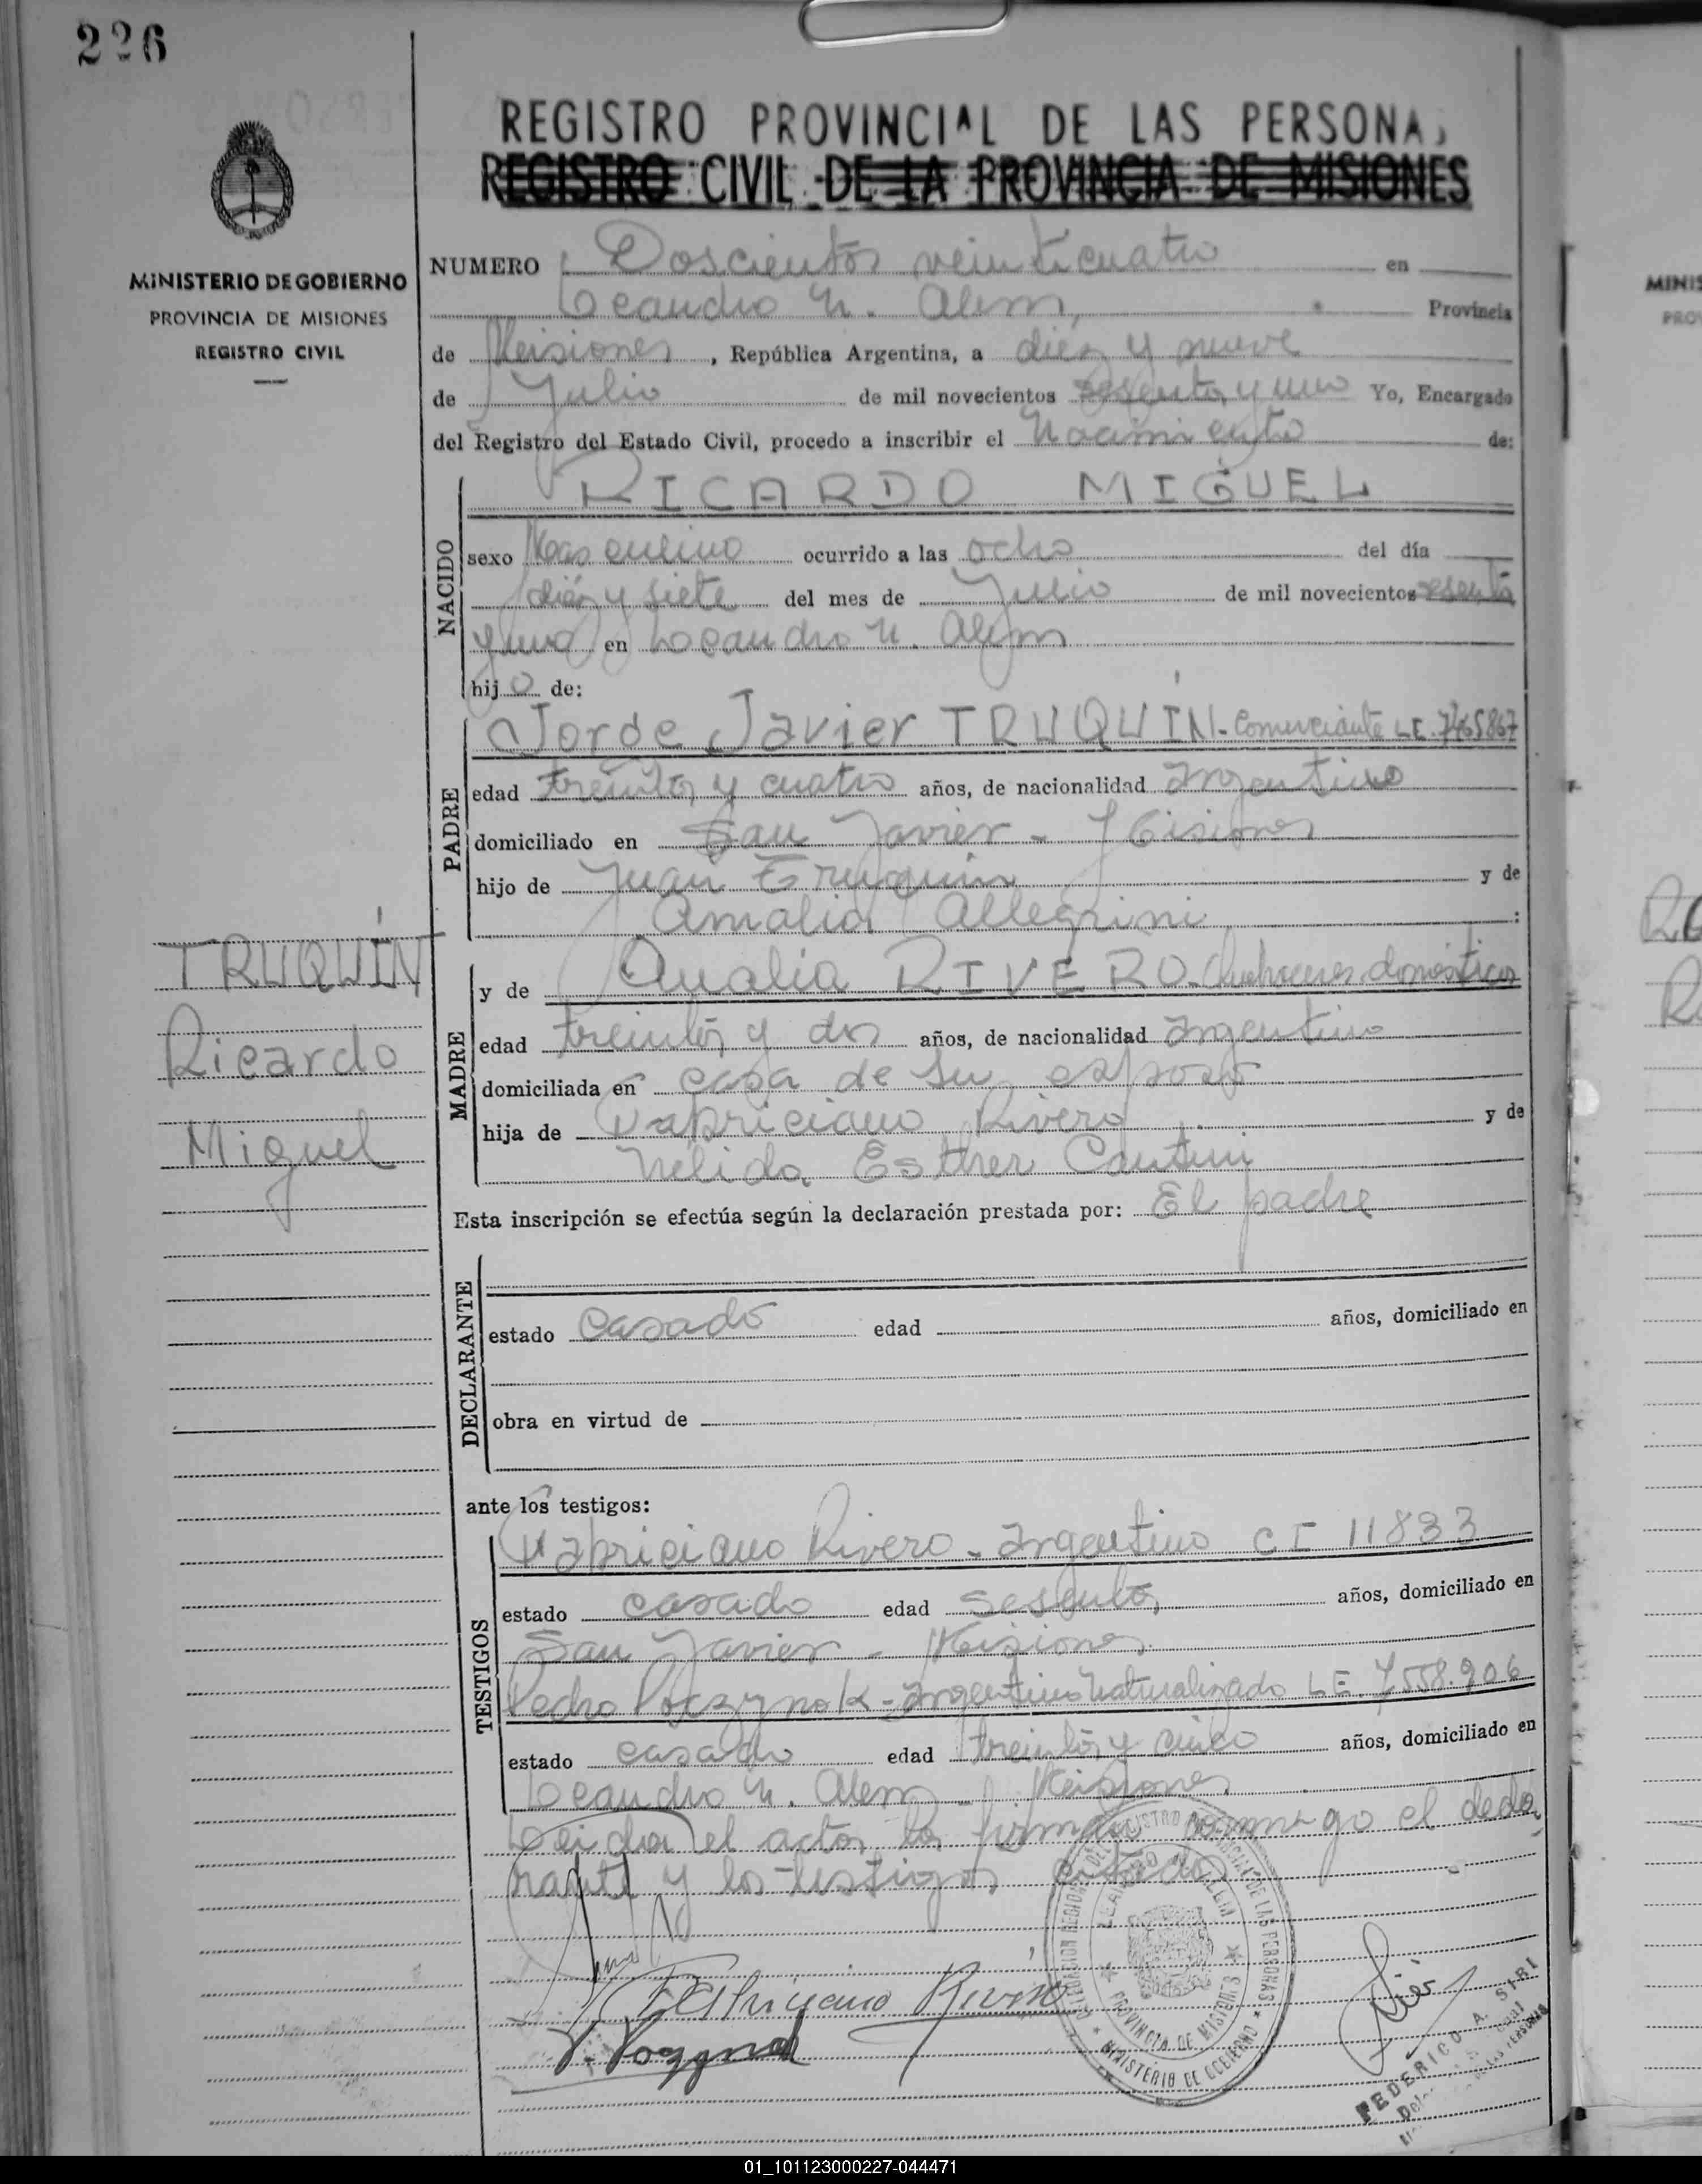 226
REGISTRO PROVINCIAL DE LAS PERSONAS
REGISTRO CIVIL DE LA PROVINCIA DE MISIONES
MINISTERIO DE GOBIERNO
PROVINCIA DE MISIONES
REGISTRO CIVIL
NUMERO Doscientos veinticuatro en
Leandro N. Alem, Provincia
de Misiones, República Argentina, a diez y nueve
de Julio de mil novecientos sesenta y uno Yo, Encargado
del Registro del Estado Civil, procedo a inscribir el Nacimiento de:
NACIDO
RICARDO MIGUEL
sexo Masculino ocurrido a las ocho del día
diez y siete del mes de Julio de mil novecientos sesenta
y uno en Leandro N. Alem
hijo de:
PADRE
Jorge Javier TRUQUIN - Comerciante LE. 7465867
edad treinta y cuatro años, de nacionalidad Argentino
domiciliado en San Javier - Misiones
hijo de Juan Truquin y de
Amalia Allegrini :
TRUQUÍN
Ricardo
Miguel
MADRE
y de Analia RIVERO - Quehaceres domésticos
edad treinta y dos años, de nacionalidad Argentina
domiciliada en casa de su esposo
hija de Rivero y de
Nelida Esther
Esta inscripción se efectúa según la declaración prestada por: El padre
DECLARANTE
estado casado edad años, domiciliado en
obra en virtud de
ante los testigos:
TESTIGOS
Rivero - Argentino CI 11833
estado casado edad sesenta años, domiciliado en
San Javier - Misiones
Pedro - Argentino Naturalizado LE. 7.558.906
estado casado edad treinta y cinco años, domiciliado en
Leandro N. Alem - Misiones
Leida el acta, la firman conmigo el decla
rante y los testigos
PROVINCIA DE MISIONES
MINISTERIO DE GOBIERNO
FEDERICO A. SIRI
01_101123000227-044471